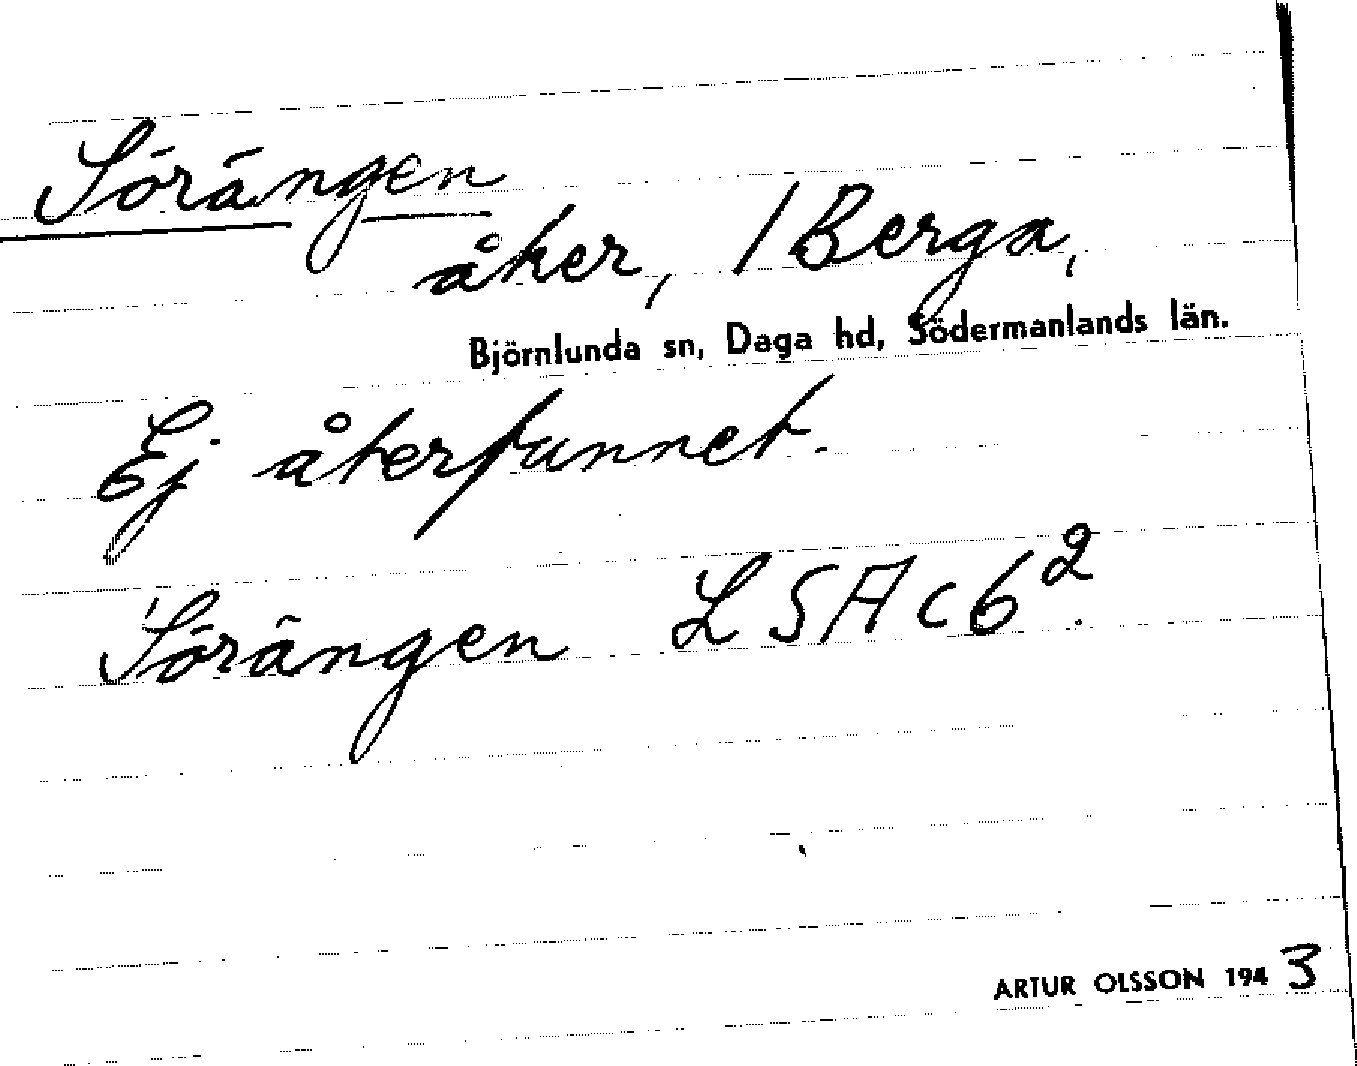 Sörängen
åker, / Berga,
Björnlunda sn, Daga hd, Södermanlands län.
Ej återfunnet.
Sörängen LSA c6².
ARTUR OLSSON 1943